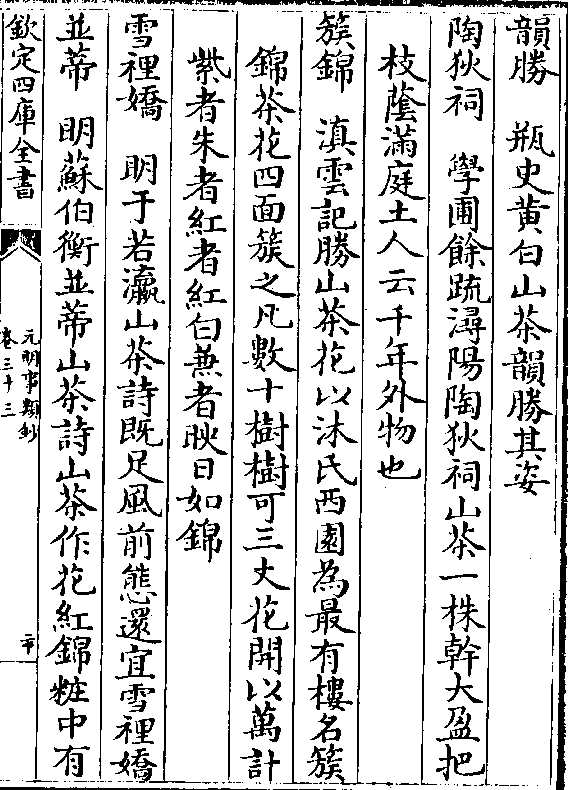 韻勝　瓶史黄白山茶韻勝其姿
陶狄祠　學圃餘疏潯陽陶狄祠山茶一株幹大盈把
枝蔭滿庭土人云千年外物也
簇錦　滇雲記勝山茶花以沐氏西園為最有樓名簇
錦茶花四面簇之凡數十樹樹可三丈花開以萬計
紫者朱者紅者紅白兼者映日如錦
雪裡嬌　明于若瀛山茶詩既足風前態還宜雪裡嬌
並蒂　明蘇伯衡並蒂山茶詩山茶作花紅錦粧中有
欽定四庫全書
元明事類鈔
卷三十三